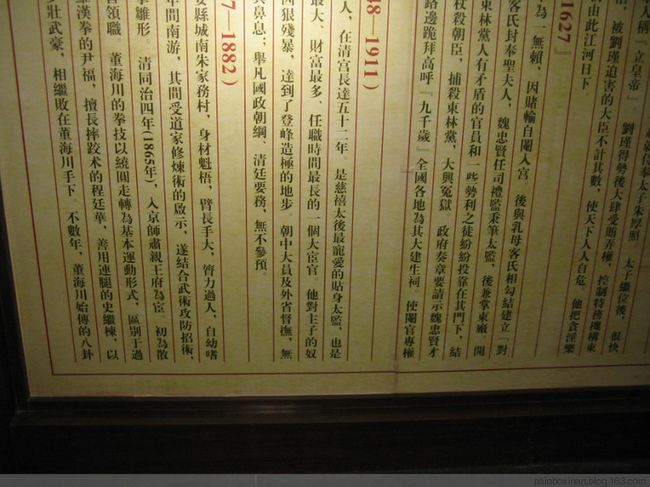 人稱『立皇帝』 劉瑾得勢後大肆受賄弄權，控制特務機構東
，被劉瑾迫害的大臣不計其數，使天下人人自危 他把貪淫樂
由此江河日下
1627
為一無賴，因賭輸自閹入宮 後與乳母客氏相勾結建立『對
客氏封奉聖夫人，魏忠賢任司禮監秉筆太監，後兼掌東廠 開
東林黨人有矛盾的官員和一些勢利之徒紛紛投靠在其門下，結
杖殺朝臣，捕殺東林黨，大興冤獄 政府奏章要請示魏忠賢才
路邊跪拜高呼『九千歲』全國各地為其大建生祠 使閹官專權
48 1911)
人，在清宮長達五十二年 是慈禧太後最寵愛的貼身太監，也是
最大、財富最多、任職時間最長的一個大宦官 他對主子的奴
國狠殘暴，達到了登峰造極的地步 朝中大員及外省督撫，無
其鼻息；舉凡國政朝綱、清廷要務，無不參預
7—1882)
安縣城南朱家務村，身材魁梧，臂長手大，膂力過人，自幼嗜
年間南游，其間受道家修煉術的啟示，遂結合武術攻防招術，
拳雛形。清同治四年(1865年)，入京師肅親王府為宦 初為散
首領職 董海川的拳技以繞圓走轉為基本運動形式，區別于過
羅漢拳的尹福，擅長摔跤術的程廷華，善用連腿的史繼棟，以
少壯武豪，相繼敗在董海川手下 不數年，董海川始傳的八卦